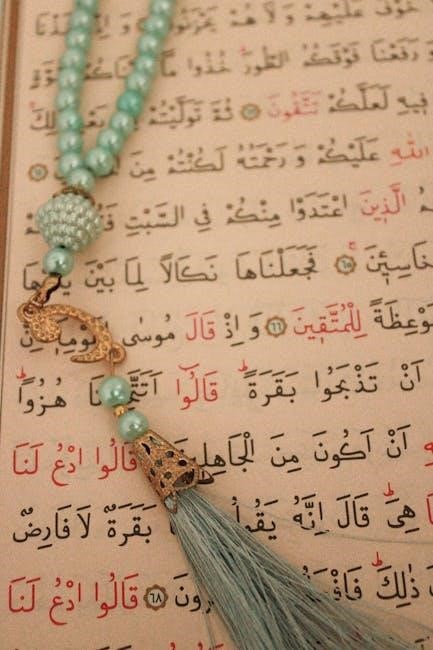 خَوْفٌ عَلَيْهِمْ وَلَا هُمْ يَحْزَنُونَ
وَرَفَعْنَا فَوْقَكُمُ الطُّورَ خُذُوا
فِيهِ لَعَلَّكُمْ تَتَّقُونَ ثُمَّ تَوَلَّيْتُمْ ذٰلِكَ
اللّٰهِ عَلَيْكُمْ وَرَحْمَتُهُ لَكُنْتُمْ مِنَ
الَّذِينَ اعْتَدَوْا مِنْكُمْ فِي السَّبْتِ
خَاسِـِٔينَ ٦٥ فَجَعَلْنَاهَا نَكَالًا لِمَا بَيْنَ
لِلْمُتَّقِينَ ٦٦ وَاِذْ قَالَ مُوسٰى
اَنْ تَذْبَحُوا بَقَرَةً قَالُٓوا هُزُوًا
اَنْ اَكُونَ مِنَ الْجَاهِلِينَ قَالُوا ادْعُ لَنَا
هِيَ قَالَ اِنَّهُ يَقُولُ بَقَرَةٌ لَا فَارِضٌ
ذٰلِكَ ٦٨ قَالُوا ادْعُ لَنَا